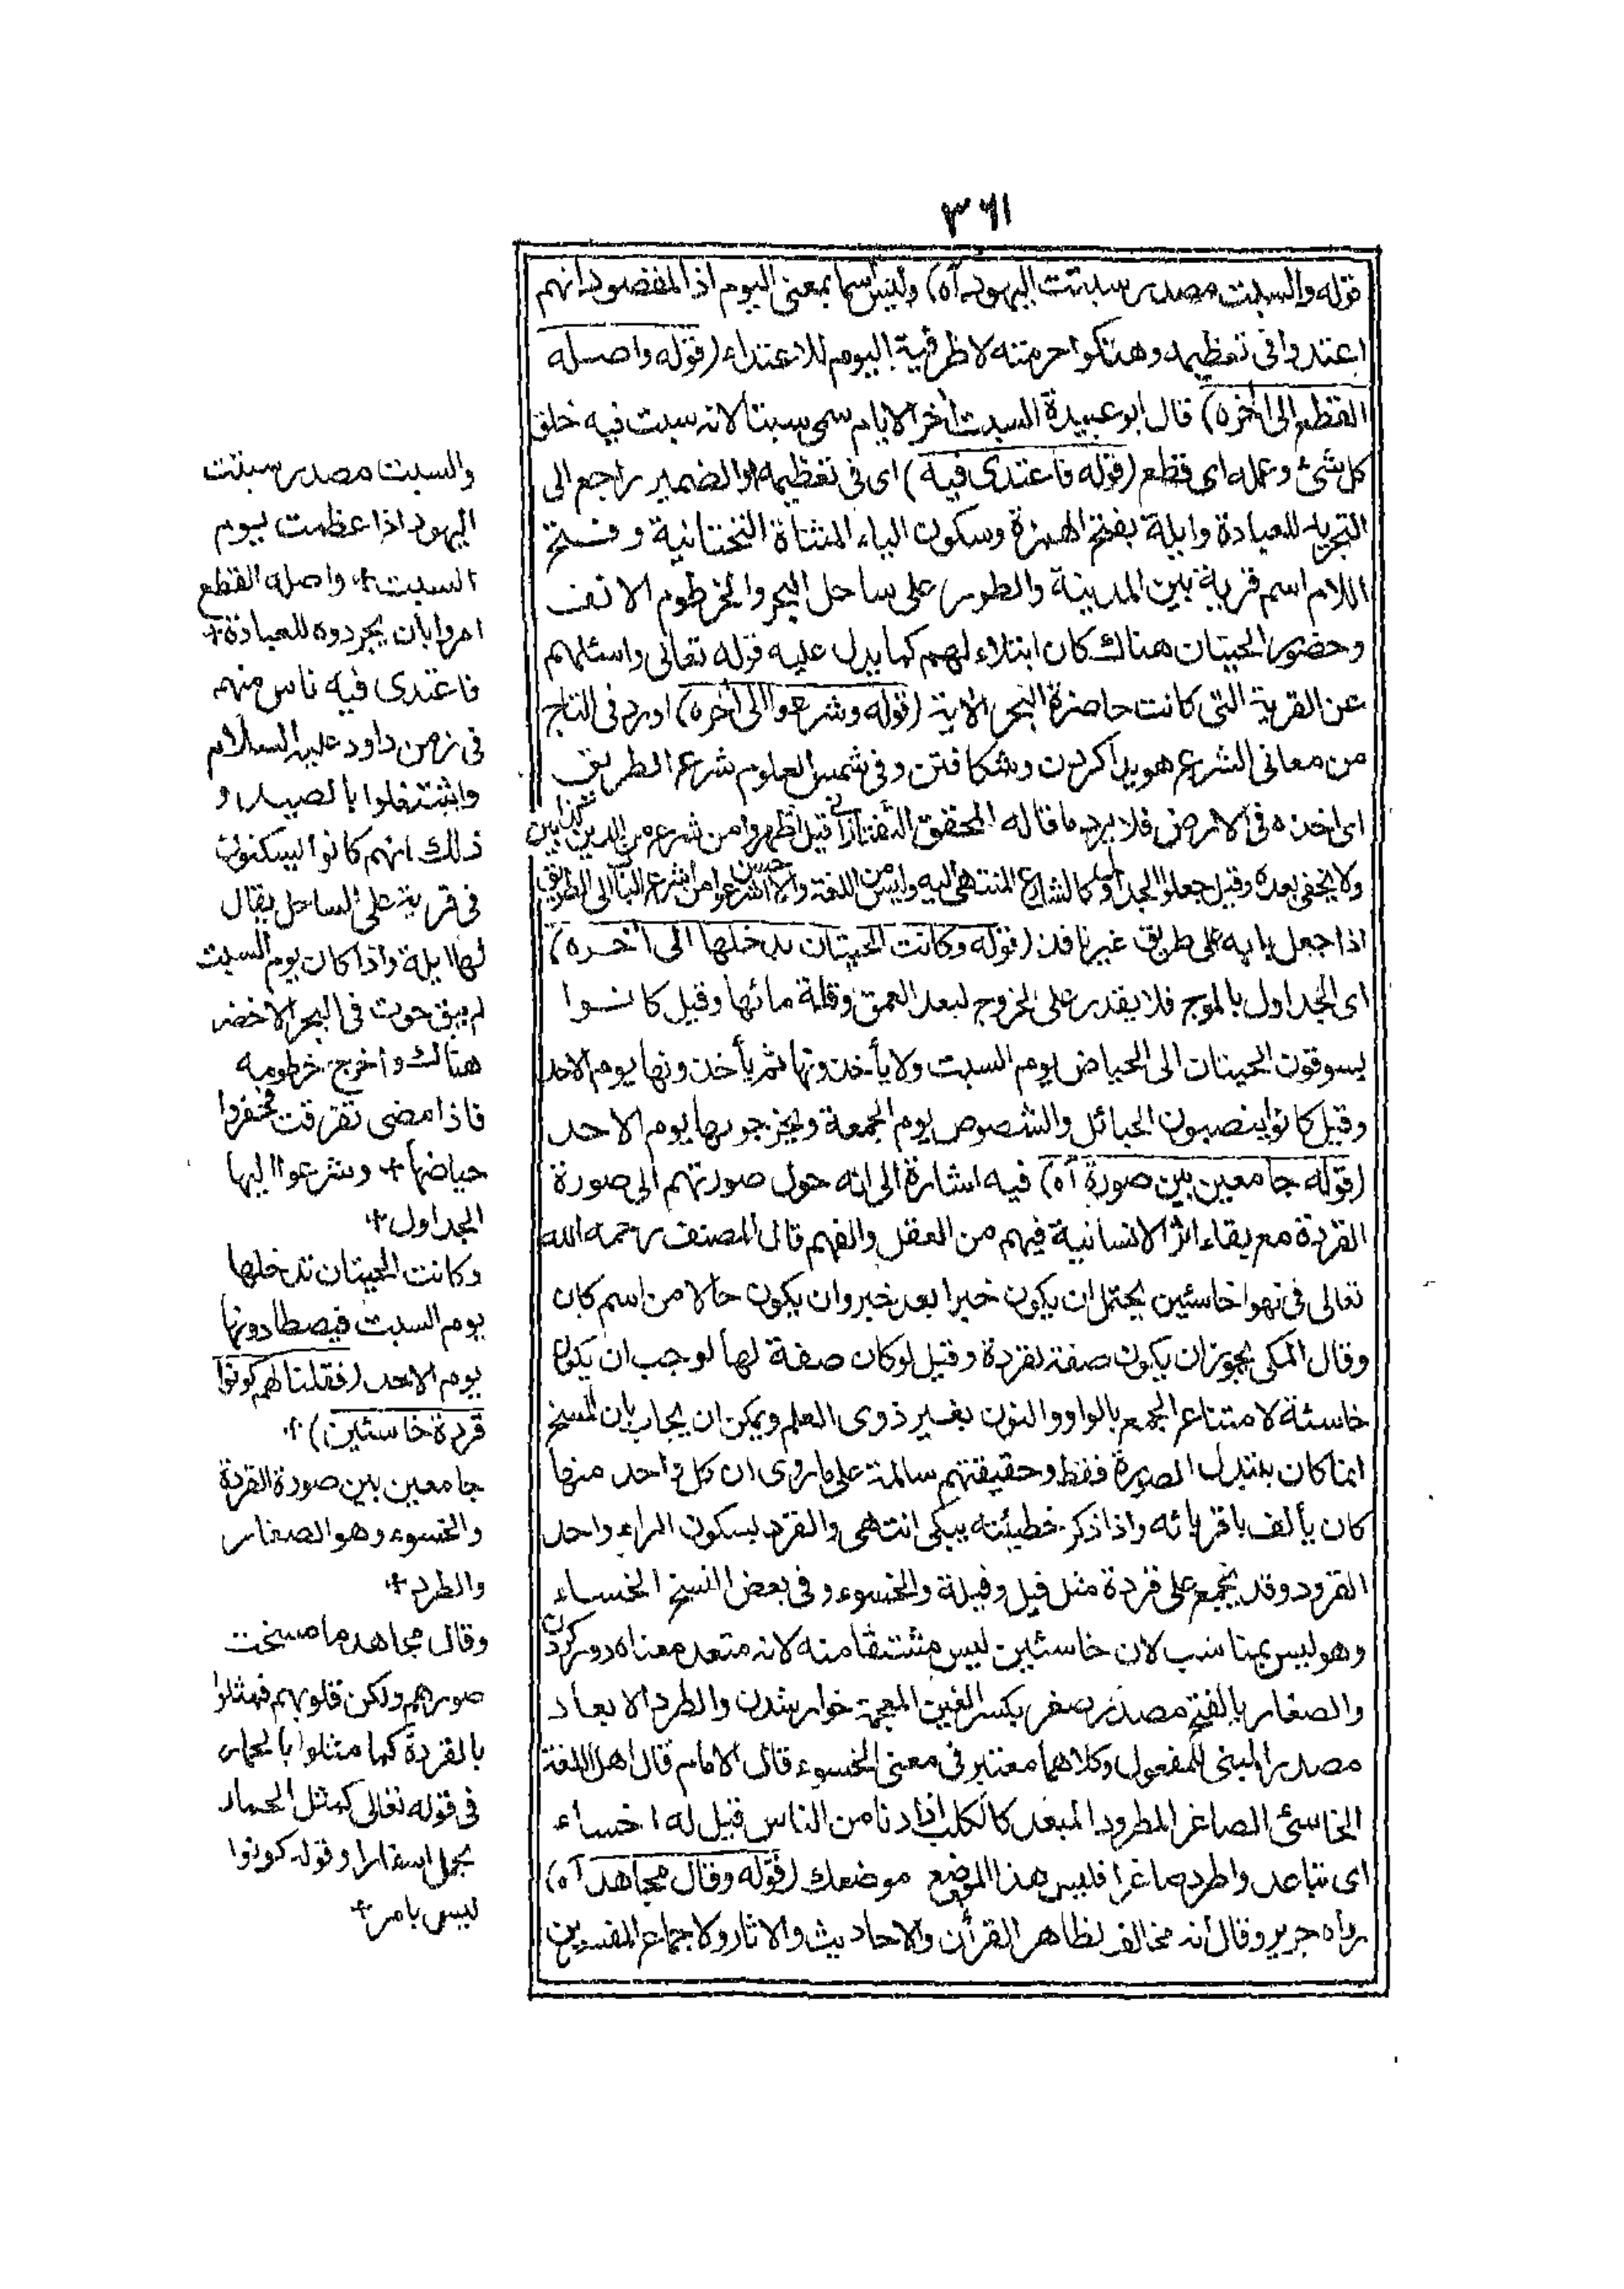 ٣٦١
قوله والسبت مصدر سبتت اليهود آه) وليس اسما بمعنى اليوم اذ المقصود انهم
اعتدوا فى تعظيمه وهتكوا حرمته لا ظرفية اليوم للاعتداء (قوله واصله
القطع الى اخره) قال ابو عبيدة السبت اخر الايام سمى سبتا لانه سبت فيه خلق
كل شئ وعمله اى قطع (قوله فاعتدى فيه) اى فى تعظيمه او الضمير راجع الى
التجريد للعبادة وايلة بفتح الهمزة وسكون الياء المثناة التحتانية وفتح
اللام اسم قرية بين المدينة والطور على ساحل البحر والخرطوم الانف
وحضور الحيتان هناك كان ابتلاء لهم كما يدل عليه قوله تعالى واسئلهم
عن القرية التى كانت حاضرة البحر الاية (قوله وشرعوا الى اخره) اورد فى التاج
من معانى الشرع هويدا كردن وشكافتن وفى شمس العلوم شرع الطريق
اى اخذه فى الارض فلا يرد ما قاله المحقق التفتازانى قيل اظهروا من شرع من الدين كذا بين
ولا يخفى بعده وقيل جعلوا الجداول كالشارع المنتهى اليه وليس من اللغة والاحسن اشرعوا من اشرع الباب الى الطريق
اذا جعل بابه على طريق غير نافذ (قوله وكانت الحيتان تدخلها الى اخره)
اى الجداول بالموج فلا يقدر على الخروج لبعد العمق وقلة مائها وقيل كانوا
يسوقون الحيتان الى الحياض يوم السبت ولا يأخذونها ثم يأخذونها يوم الاحد
وقيل كانوا ينصبون الحبائل والشصوص يوم الجمعة ويخرجونها يوم الاحد
(قوله جامعين بين صورة آه) فيه اشارة الى انه حول صورتهم الى صورة
القردة مع بقاء اثر الانسانية فيهم من العقل والفهم قال المصنف رحمه الله
تعالى فى نهوا خاسئين يحتمل ان يكون خبرا بعد خبر وان يكون حالا من اسم كان
وقال المكى يجوز ان يكون صفة لقردة وقيل لو كان صفة لها لوجب ان يكون
خاسئة لامتناع الجمع بالواو والنون بغير ذوى العلم ويمكن ان يجاب بان المسخ
انما كان بتبدل الصورة فقط وحقيقتهم سالمة على ما روى ان كل واحد منها
كان يألف باقربائه واذا ذكر خطيئته يبكى انتهى والقرد بسكون الراء واحد
القرود وقد يجمع على قردة مثل فيل وفيلة والخسوء وفى بعض النسخ الخساء
وهو ليس بمناسب لان خاسئين ليس مشتقا منه لانه متعد معناه دور كردن
والصغار بالفتح مصدر صغر بكسر الغين المعجمة خوار شدن والطرد الابعاد
مصدر المبنى للمفعول وكلاهما معتبر فى معنى الخسوء قال الامام قال اهل اللغة
الخاسئ الصاغر المطرود المبعد كالكلب اذا دنا من الناس قيل له اخساء
اى تباعد واطرد صاغرا فليس هذا الموضع موضعك (قوله وقال مجاهد آه)
رواه جرير وقال انه مخالف لظاهر القرأن والاحاديث والاثار ولاجماع المفسرين
والسبت مصدر سبتت
اليهود اذا عظمت يوم
السبت+ واصله القطع
امروا بان يجردوه للعبادة+
فاعتدى فيه ناس منهم
فى زمن داود عليه السلام
واشتغلوا بالصيد و
ذلك انهم كانوا يسكنون
فى قرية على الساحل يقال
لها ايلة واذا كان يوم السبت
لم يبق حوت فى البحر الا حضر
هنالك واخرج خرطومه
فاذا مضى تفرقت فحفروا
حياضا+ وشرعوا اليها
الجداول+
وكانت الحيتان تدخلها
يوم السبت فيصطادونها
يوم الاحد (فقلنا لهم كونوا
قردة خاسئين)+
جامعين بين صورة القردة
والخسوء وهو الصغار
والطرد+
وقال مجاهد ما مسخت
صورهم ولكن قلوبهم فمثلوا
بالقردة كما مثلوا بالحمار
فى قوله تعالى كمثل الحمار
يحمل اسفارا وقوله كونوا
ليس بامر+